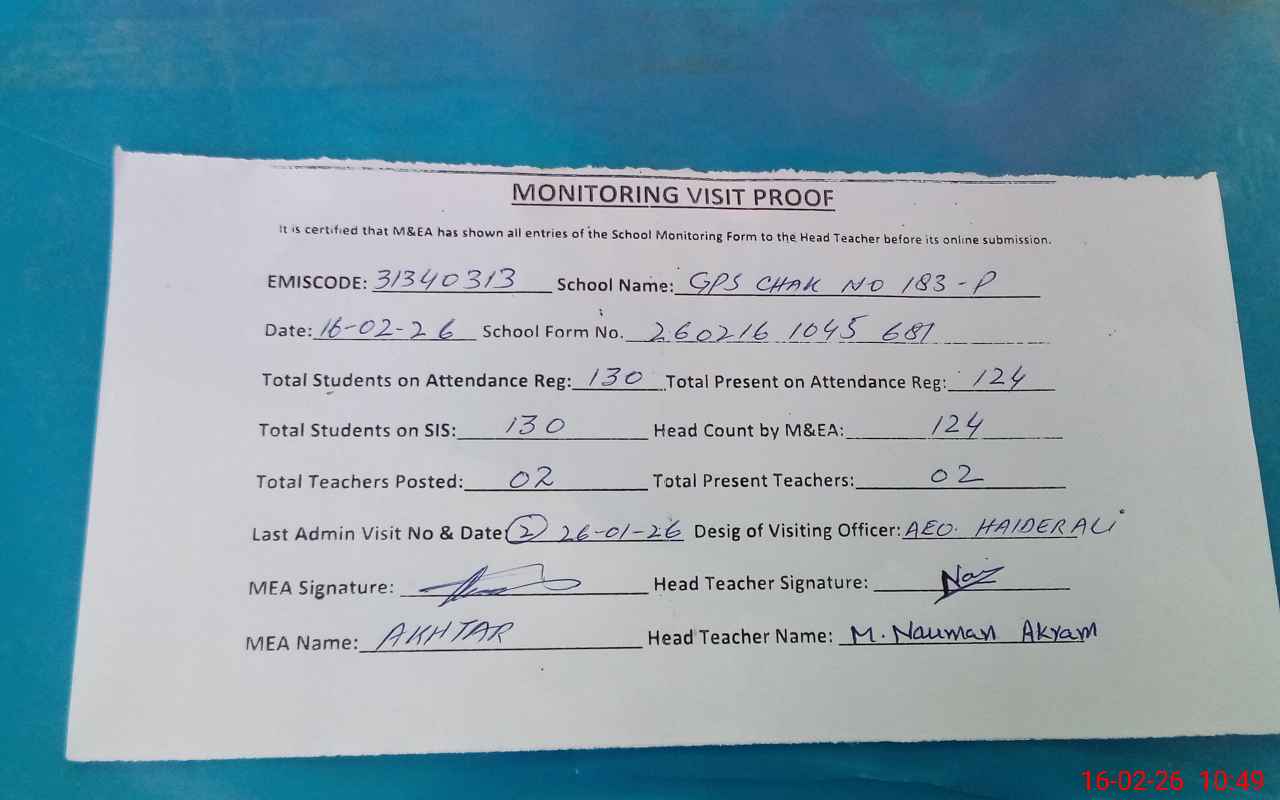 MONITORING VISIT PROOF
It is certified that M&EA has shown all entries of the School Monitoring Form to the Head Teacher before its online submission.
EMISCODE: 31340313 School Name: GPS CHAK NO 183-P
Date: 16-02-26 School Form No. 260216 1045 681
Total Students on Attendance Reg: 130 Total Present on Attendance Reg: 124
Total Students on SIS: 130 Head Count by M&EA: 124
Total Teachers Posted: 02 Total Present Teachers: 02
Last Admin Visit No & Date: 2 26-01-26 Desig of Visiting Officer: AEO. HAIDER ALI
MEA Signature: Head Teacher Signature: Naz
MEA Name: AKHTAR Head Teacher Name: M. Nauman Akram
16-02-26 10:49